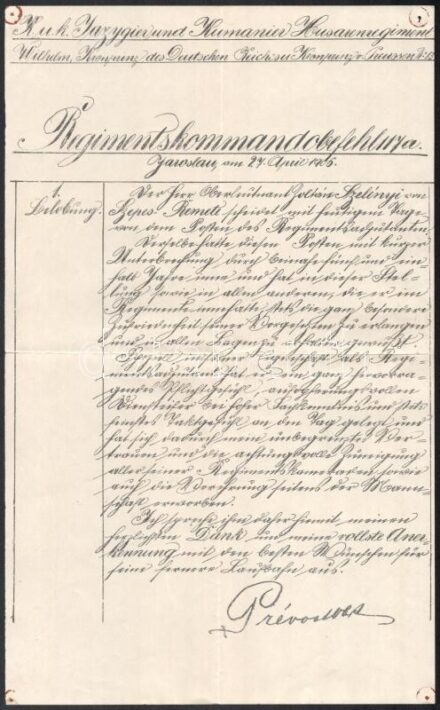 K. u. k. Jazygier und Kumanier Husarenregiment
Wilhelm, Kronprinz des Deutschen Reichs u. Kronprinz v. Preussen № 13
Regimentskommandobefehl
Jaroslau, am 27. April
1.
Belobung.
Der Herr Oberleutnant Zoltán Szelinyi von
Szepes-Remete scheidet mit heutigem Tage
von dem Posten des Regimentsadjutanten.
Derselbe hatte diesen Posten mit kurzer
Unterbrechung durch beinahe fünf und ein
halb Jahre inne und hat in dieser Stel-
lung sowie in allen anderen, die er im
Regimente innehatte, stets die ganz besondere
Zufriedenheit seiner Vorgesetzten zu erlangen
und in allen Lagen zu erhalten gewußt.
Speziell in seiner Eigenschaft als Regi-
mentsadjutant hat er ein ganz hervorra-
gendes Pflichtgefühl, aufopferungsvollen
Diensteifer bei hoher Sachkenntnis und stets
feinstes Taktgefühl an den Tag gelegt und
hat sich dadurch mein unbegrenztes Ver-
trauen und die achtungsvolle Zuneigung
aller seiner Regimentskameraden sowie
auch die Verehrung seitens der Mann-
schaft erworben.
Ich spreche ihm daher hiemit meinen
herzlichsten Dank und meine vollste Aner-
kennung mit den besten Wünschen für
seine fernere Laufbahn aus.